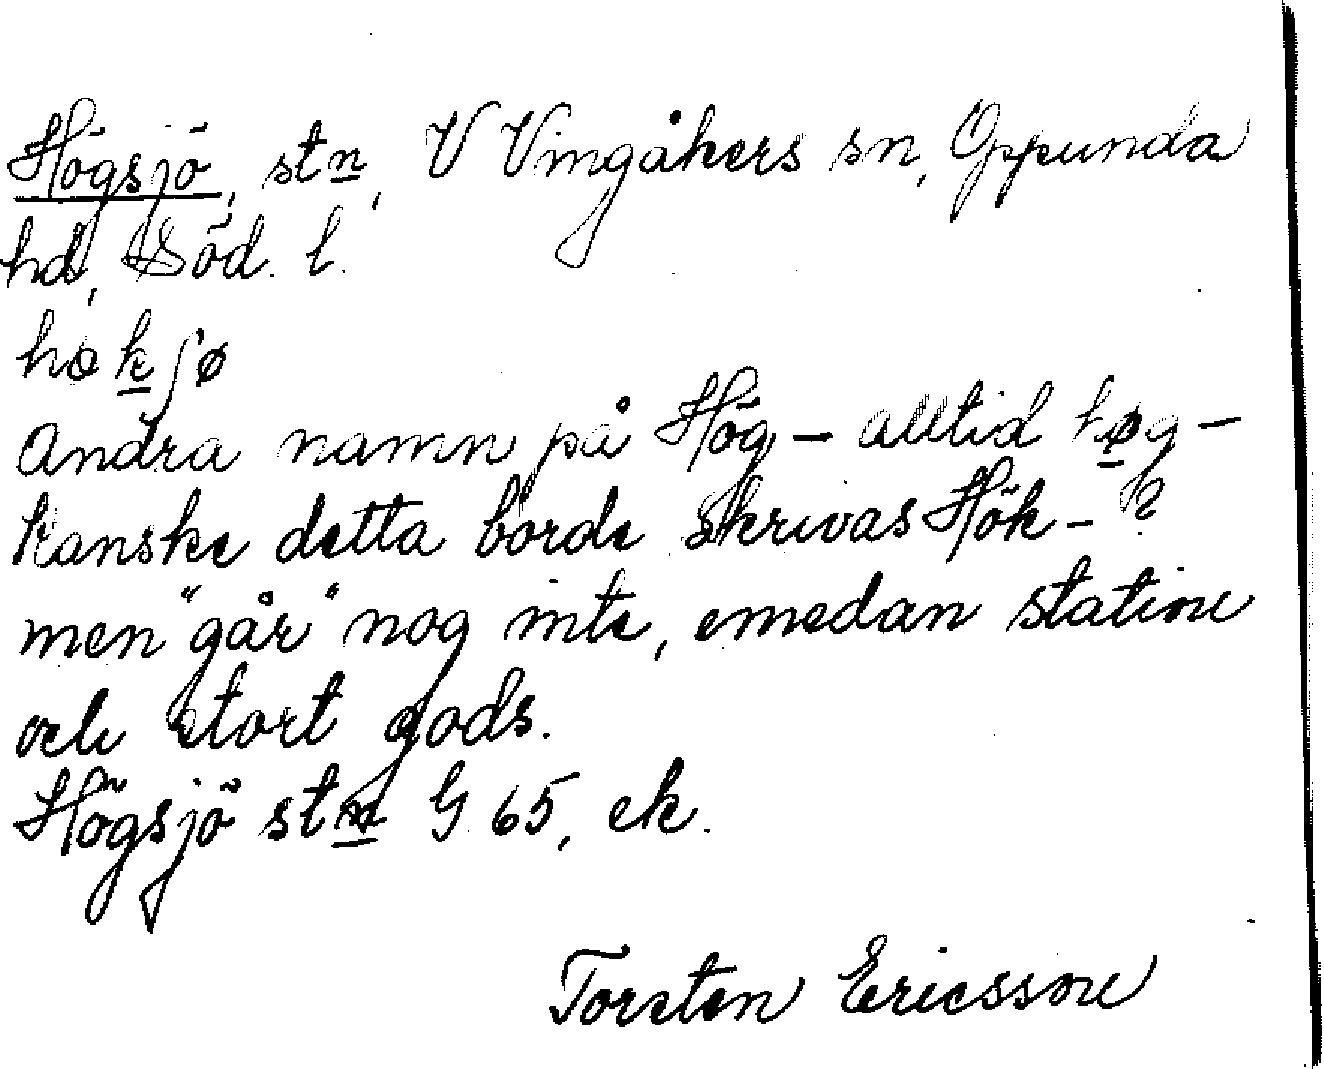 Högsjö, stn, V Vingåkers sn, Oppunda
hd, Söd. l.
høkʃø
Andra namn på Hög- alltid høg-
Kanske detta borde skrivas Hök-?
men "går" nog inte, emedan station
och stort gods.
Högsjö stn G 65, ek.
Torsten Ericsson